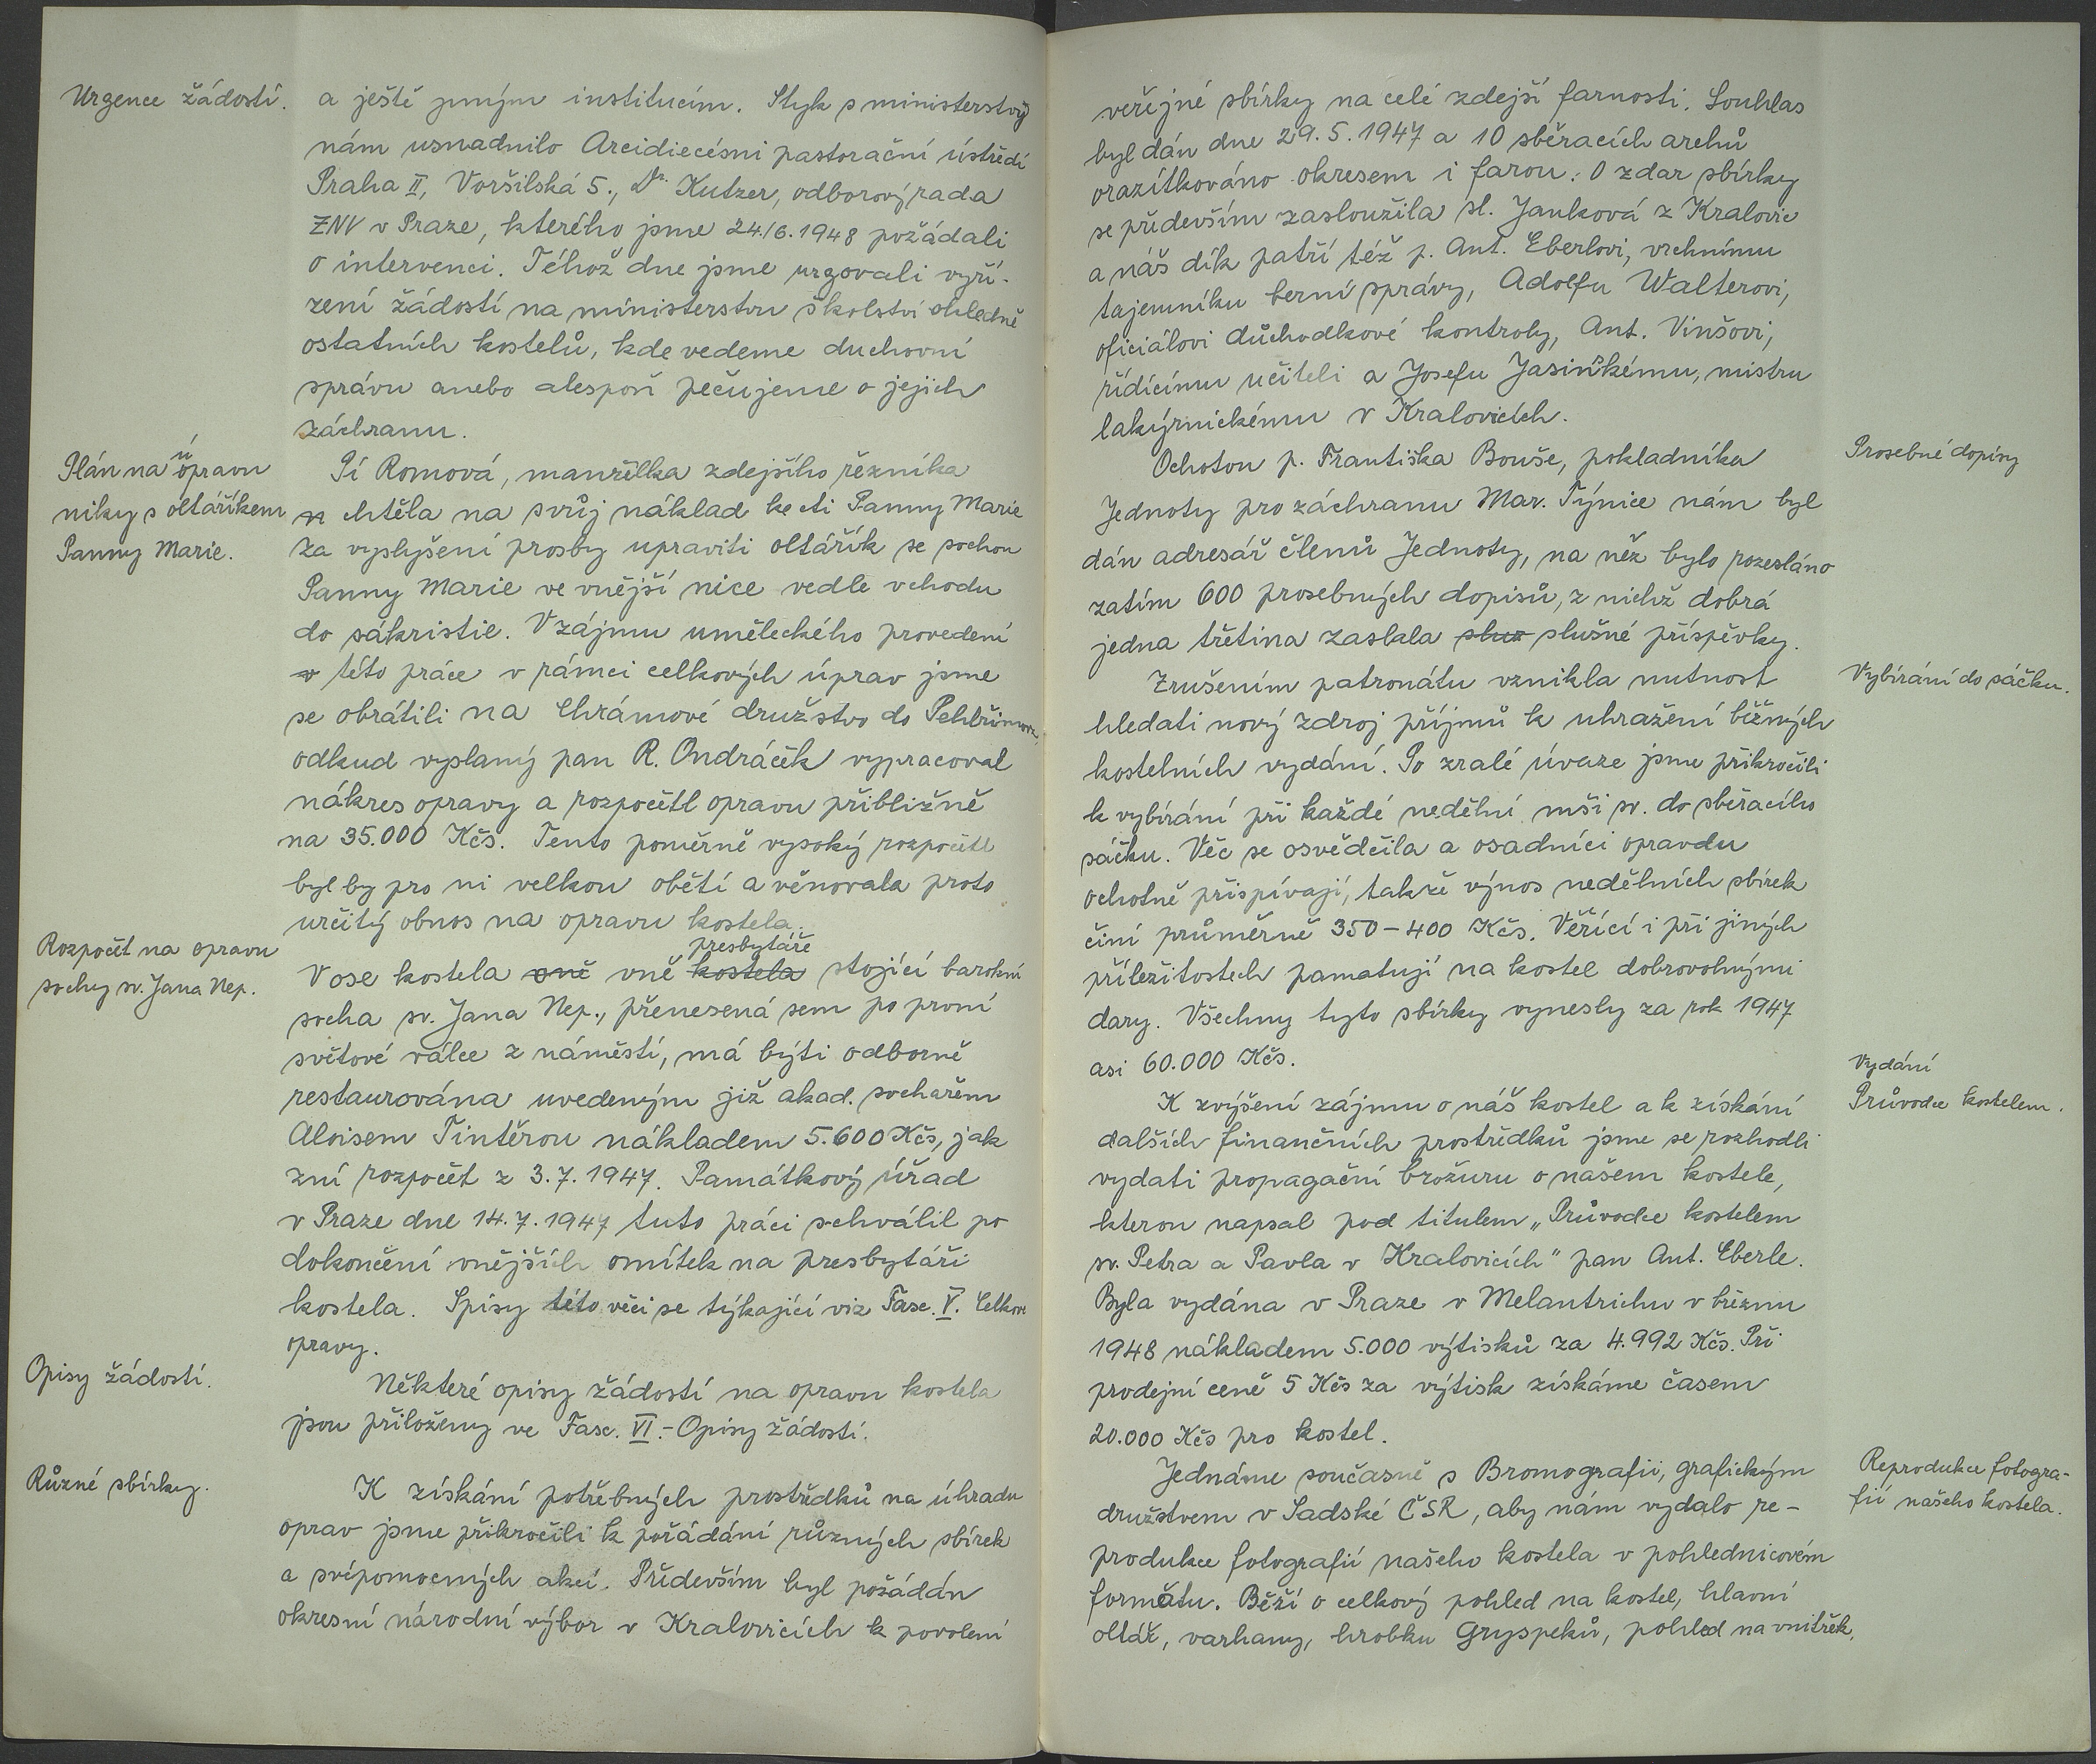 Urgence žádostí.
a ještě jiným institucím. Styk s ministerstvy
nám usnadnilo Arcidiecésní pastorační ústředí
Praha II, Voršilská 5., Dr. Kutzer, odborový rada
ZNV v Praze, kterého jsme 24./6.1948 požádali
o intervenci. Téhož dne jsme urgovali vyří-
zení žádostí na ministerstvu školství ohledně
ostatních kostelů, kde vedeme duchovní
správu anebo alespoň pečujeme o jejich
záchranu.
Plán na úpravu
niky s oltáříkem
Panny Marie.
Pí Romová, manželka zdejšího řezníka
chtěla na svůj náklad ke cti Panny Marie
za vyslyšení prosby upraviti oltářík se sochou
Panny Marie ve vnější nice vedle vchodu
do sákristie. V zájmu uměleckého provedení
této práce v rámci celkových úprav jsme
se obrátili na Chrámové družstvo do Pelhřimova,
odkud vyslaný pan R. Ondráček vypracoval
nákres opravy a rozpočetl opravu přibližně
na 35.000 Kčs. Tento poměrně vysoký rozpočetl
byl by pro ni velkou obětí a věnovala proto
určitý obnos na opravu kostela.
Rozpočet na opravu
sochy sv. Jana Nep.
presbytáře
V ose kostela vně kostela stojící barokní
socha sv. Jana Nep., přenesená sem po první
světové válce z náměstí, má býti odborně
restaurována uvedeným již akad. sochařem
Aloisem Tintěrou nákladem 5.600 Kčs, jak
zní rozpočet z 3.7.1947. Památkový úřad
v Praze dne 14.7.1947 tuto práci schválil po
dokončení vnějších omítek na presbytáři
kostela. Spisy této věci se týkající viz Fasc. V. Celkov.
opravy.
Opisy žádostí.
Některé opisy žádostí na opravu kostela
jsou přiloženy ve Fasc. VI.-Opisy žádostí.
Různé sbírky.
K získání potřebných prostředků na úhradu
oprav jsme přikročili k pořádání různých sbírek
a svépomocných akcí. Především byl požádán
okresní národní výbor v Kralovicích k povolení
veřejné sbírky na celé zdejší farnosti. Souhlas
byl dán dne 29.5.1947 a 10 sběracích archů
orazítkováno okresem i farou. O zdar sbírky
se především zasloužila sl. Janková z Kralovic
a náš dík patří též p. Ant. Eberlovi, vrchnímu
tajemníku berní správy, Adolfu Walterovi,
oficiálovi důchodkové kontroly, Ant. Vinšovi,
řídícímu učiteli a Josefu Jasinskému, mistru
lakýrnickému v Kralovicích.
Prosebné dopisy
Ochotou p. Františka Bouše, pokladníka
Jednoty pro záchranu Mar. Týnice nám byl
dán adresář členů Jednoty, na něž bylo rozesláno
zatím 600 prosebných dopisů, z nichž dobrá
jedna třetina zaslala slušné příspěvky.
Vybírání do sáčku.
Zrušením patronátu vznikla nutnost
hledati nový zdroj příjmů k uhražení běžných
kostelních vydání. Po zralé úvaze jsme přikročili
k vybírání při každé nedělní mši sv. do sběracího
sáčku. Věc se osvědčila a osadníci opravdu
ochotně přispívají, takže výnos nedělních sbírek
činí průměrně 350-400 Kčs. Věřící i při jiných
příležitostech pamatují na kostel dobrovolnými
dary. Všechny tyto sbírky vynesly za rok 1947
asi 60.000 Kčs.
Vydání
Průvodce kostelem.
K zvýšení zájmu o náš kostel a k získání
dalších finančních prostředků jsme se rozhodli
vydati propagační brožuru o našem kostele,
kterou napsal pod titulem „Průvodce kostelem
sv. Petra a Pavla v Kralovicích" pan Ant. Eberle.
Byla vydána v Praze v Melantrichu v březnu
1948 nákladem 5.000 výtisků za 4.992 Kčs. Při
prodejní ceně 5 Kčs za výtisk získáme časem
20.000 Kčs pro kostel.
Reprodukce fotogra-
fií našeho kostela.
Jednáme současně s Bromografií, grafickým
družstvem v Sadské ČSR, aby nám vydalo re-
produkce fotografií našeho kostela v pohlednicovém
formátu. Běží o celkový pohled na kostel, hlavní
oltář, varhany, hrobku Gryspeků, pohled na vnitřek,